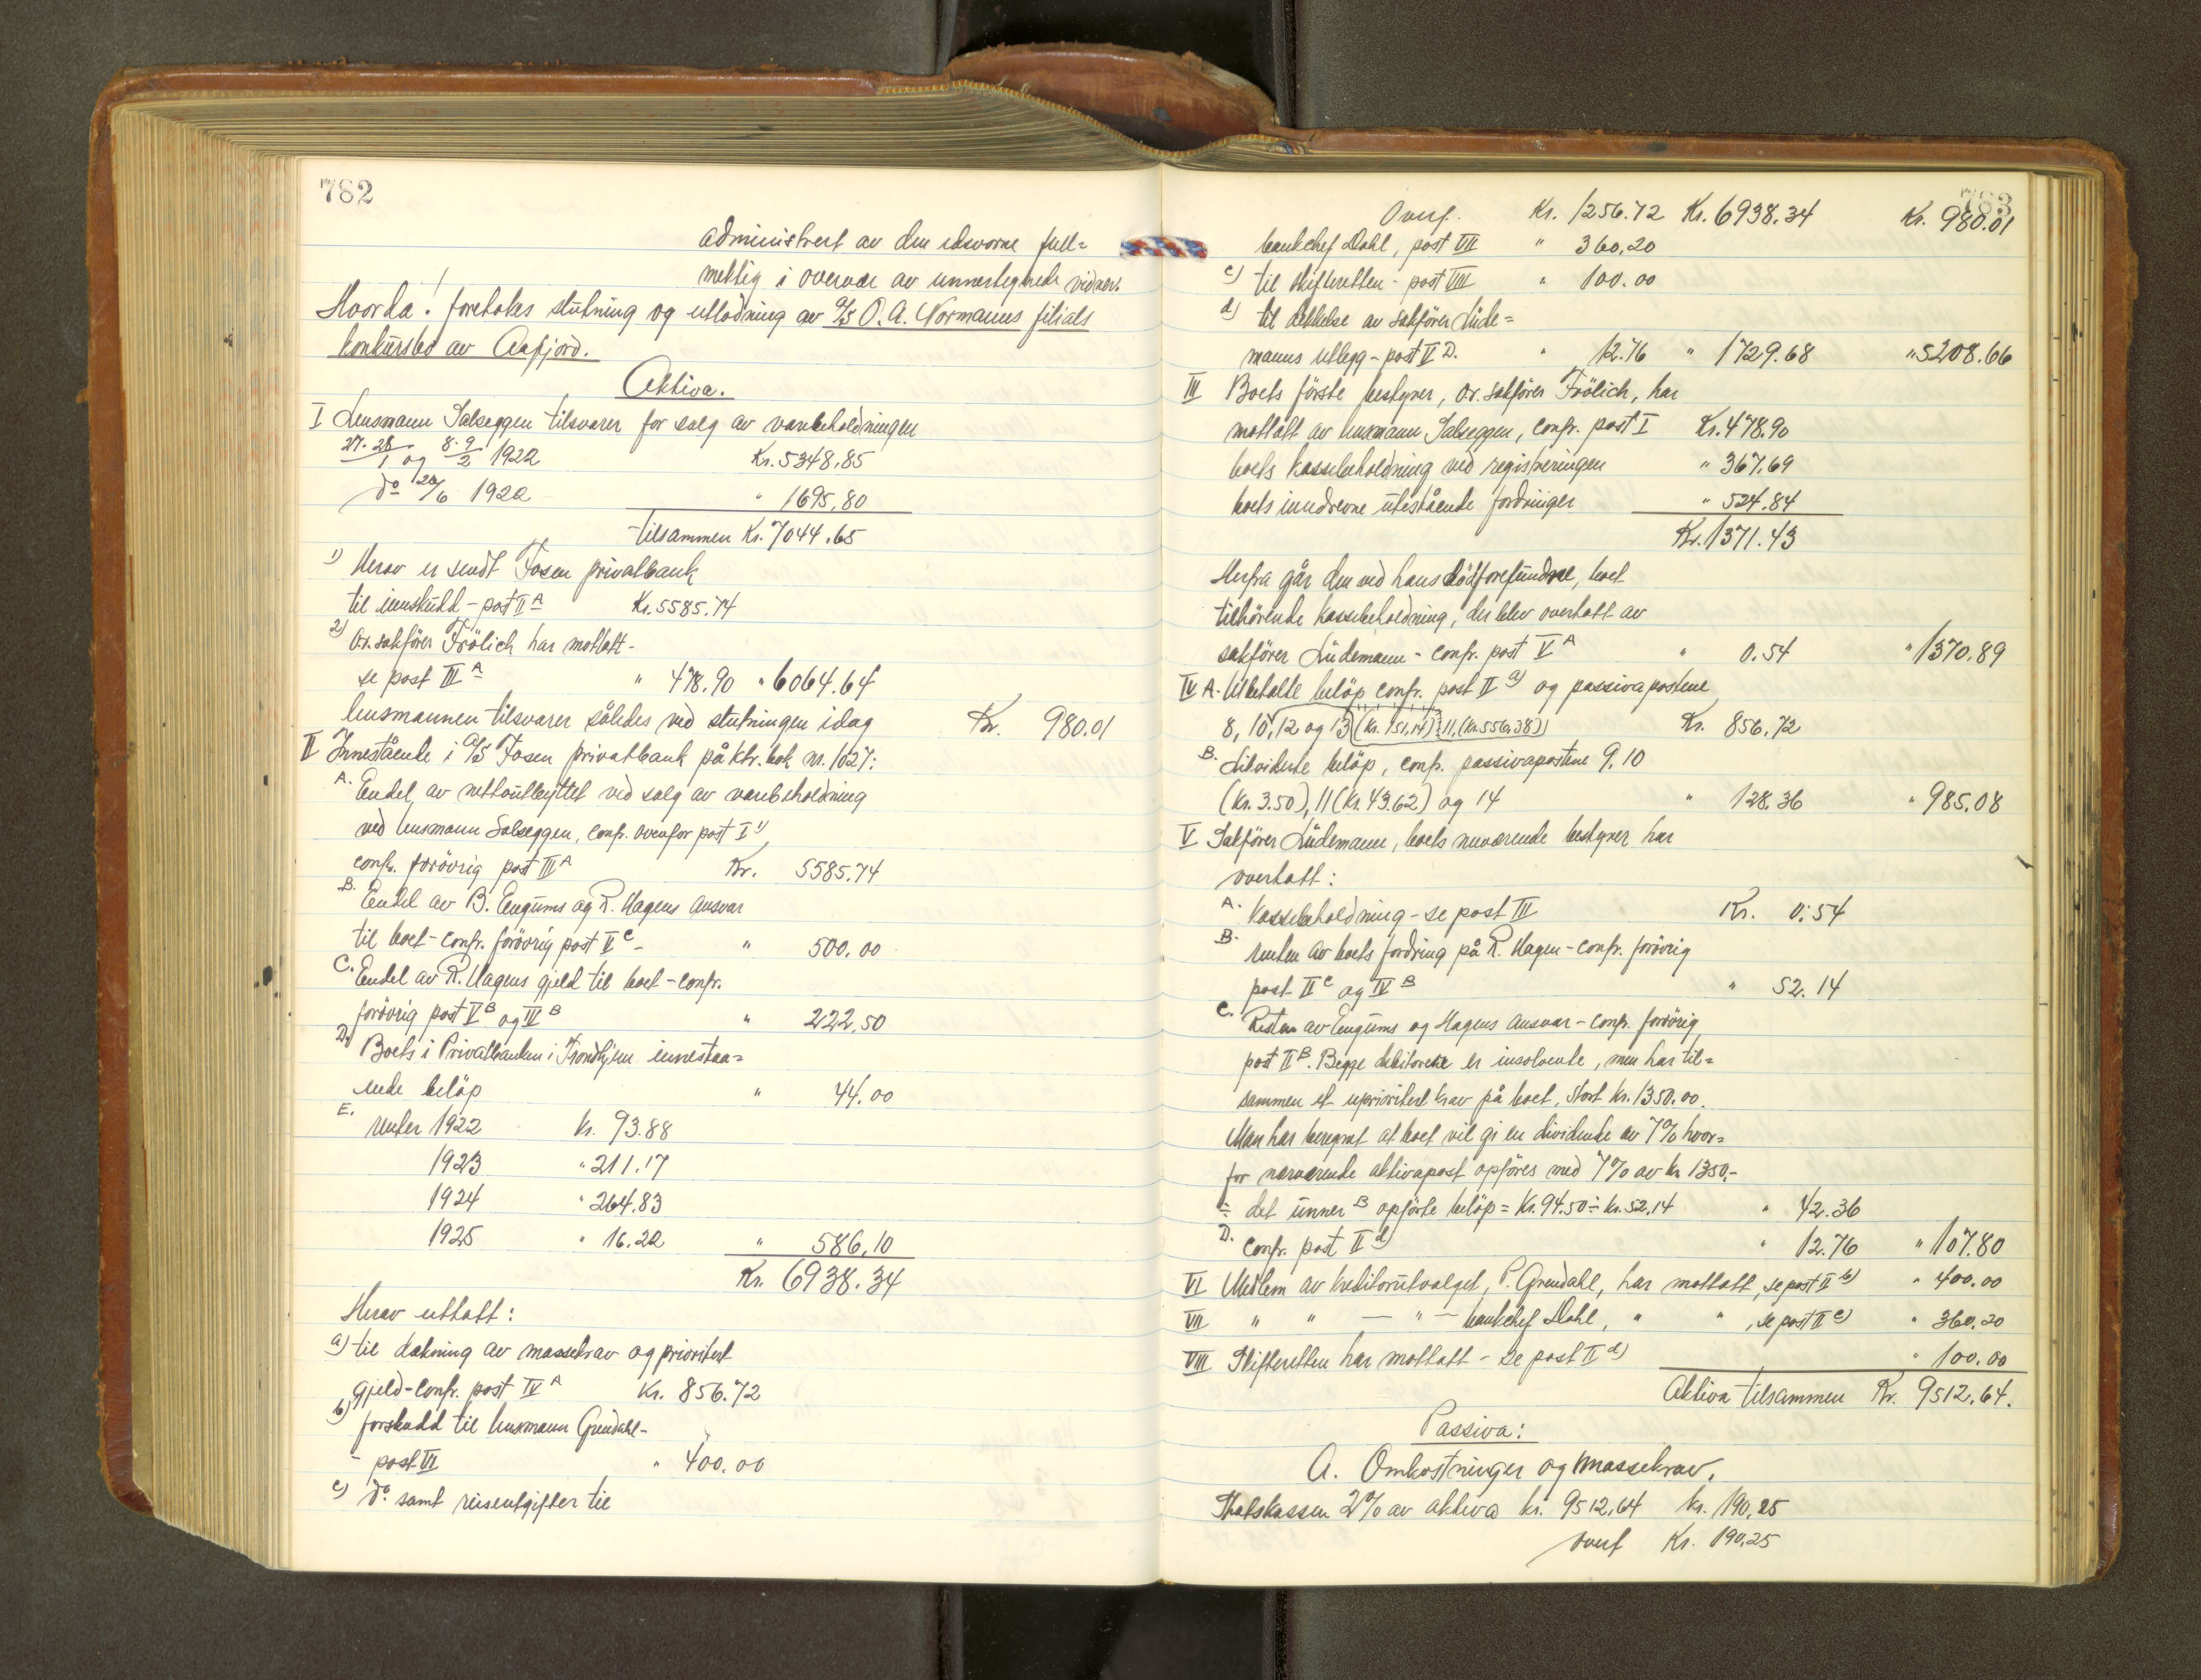 782
administrert av den edsvorne full=
mektig i overvær av unnertegnede vidner.
Hvorda! foretokes slutning og utlodning av A/S O. A. Normanns filials
konkursbo av Aafjord.
Aktiva.
I Lensmann Salseggen tilsvarer for salg av varebeholdningen
27. 28/1 og 8. 9/2 1922 Kr. 5348,85
do 20/6 1922 " 1695,80
tilsammen Kr. 7044.65
1) Herav er sendt Fosen privatbank
til innskudd - post II A Kr. 5585.74
2) O.r.sakfører Frölich har mottatt -
se post III A " 478.90 " 6064.64
lensmannen tilsvarer således ved slutningen idag Kr. 980.01
II Innestående i A/S Fosen privatbank på ktr. bok nr. 1027:
A. Endel av nettoutbyttet ved salg av varebeholdning
ved lensmann Salseggen, confr. ovenfor post I 1)
confr. forøvrig post III A Kr. 5585.74
B. Endel av B. Engums og R. Hagens ansvar
til boet - confr. forøvrig post V C - " 500.00
C. Endel av R. Hagens gjeld til boet - confr.
forøvrig post V B og IV B " 222,50
D. Boets i Privatbanken i Trondhjem innestaa=
ende beløp " 44.00
E. renter 1922 kr. 93.88
1923 " 211.17
1924 " 264.83
1925 " 16.22 " 586,10
Kr. 6938.34
Herav uttatt:
a) til dekning av massekrav og prioritert
gjeld - confr. post IV A Kr. 856.72
b) forskudd til lensmann Grendahl -
- post VI " 400.00
c) do samt reiseutgifter til
783
Overf. Kr. 1256.72 Kr. 6938.34 Kr. 980.01
bankchef Dahl, post VII " 360,20
c) til skifteretten - post VIII " 100.00
d) til dekkelse av sakfører Lüde=
manns utlegg - post V D. " 12.76 " 1729.68 " 5208.66
III Boets første bestyrer, o.r.sakfører Frölich, har
mottatt av lensmann Salseggen, confr. post I Kr. 478.90
boets kassebeholdning ved registreringen " 367.69
boets inndrevne utestående fordringer " 524.84
Kr. 1371.43
Herfra går den ved hans död forefundne, boet
tilhörende kassebeholdning, der blev overtatt av
sakfører Lüdemann - confr. post V A " 0.54 " 1370.89
IV A. Utbetalte beløp confr. post II a) og passivapostene
8, 10, 12 og 13 (kr. 151,14) 11, (kr. 556,38) Kr. 856.72
B. Likviderte beløp, confr. passivapostene 9, 10
(kr. 3.50), 11 (kr. 43.62) og 14 " 128.36 " 985.08
V Sakfører Lüdemann, boets nuværende bestyrer har
overtatt:
A. Kassebeholdning - se post III Kr. 0.54
B. renten av boets fordring på R. Hagen - confr. forøvrig
post II C og IV B " 52.14
C. Resten av Engums og Hagens ansvar - confr. forøvrig
post II B. Begge debitorene er insolvente, men har til=
sammen et uprioritert krav på boet, stort kr. 1350.00.
Man har beregnet at boet vil gi en dividende av 7% hvor=
for nærværende aktivapost opføres med 7% av kr. 1350,-
÷ det unner B opførte beløp = Kr. 94.50 ÷ kr. 52.14 " 42.36
D. confr. post II d) " 12.76 " 107.80
VI Medlem av kreditorutvalget, P. Grendahl, har mottatt, se post II b) " 400.00
VII " " — " — bankchef Dahl, " " , se post II c) " 360.20
VIII Skifteretten har mottatt - se post II d) " 100.00
Aktiva tilsammen Kr. 9512.64.
Passiva:
A. Omkostninger og massekrav.
Statskassen 2% av aktiva kr. 9512,64 kr. 190,25
overf Kr. 190,25